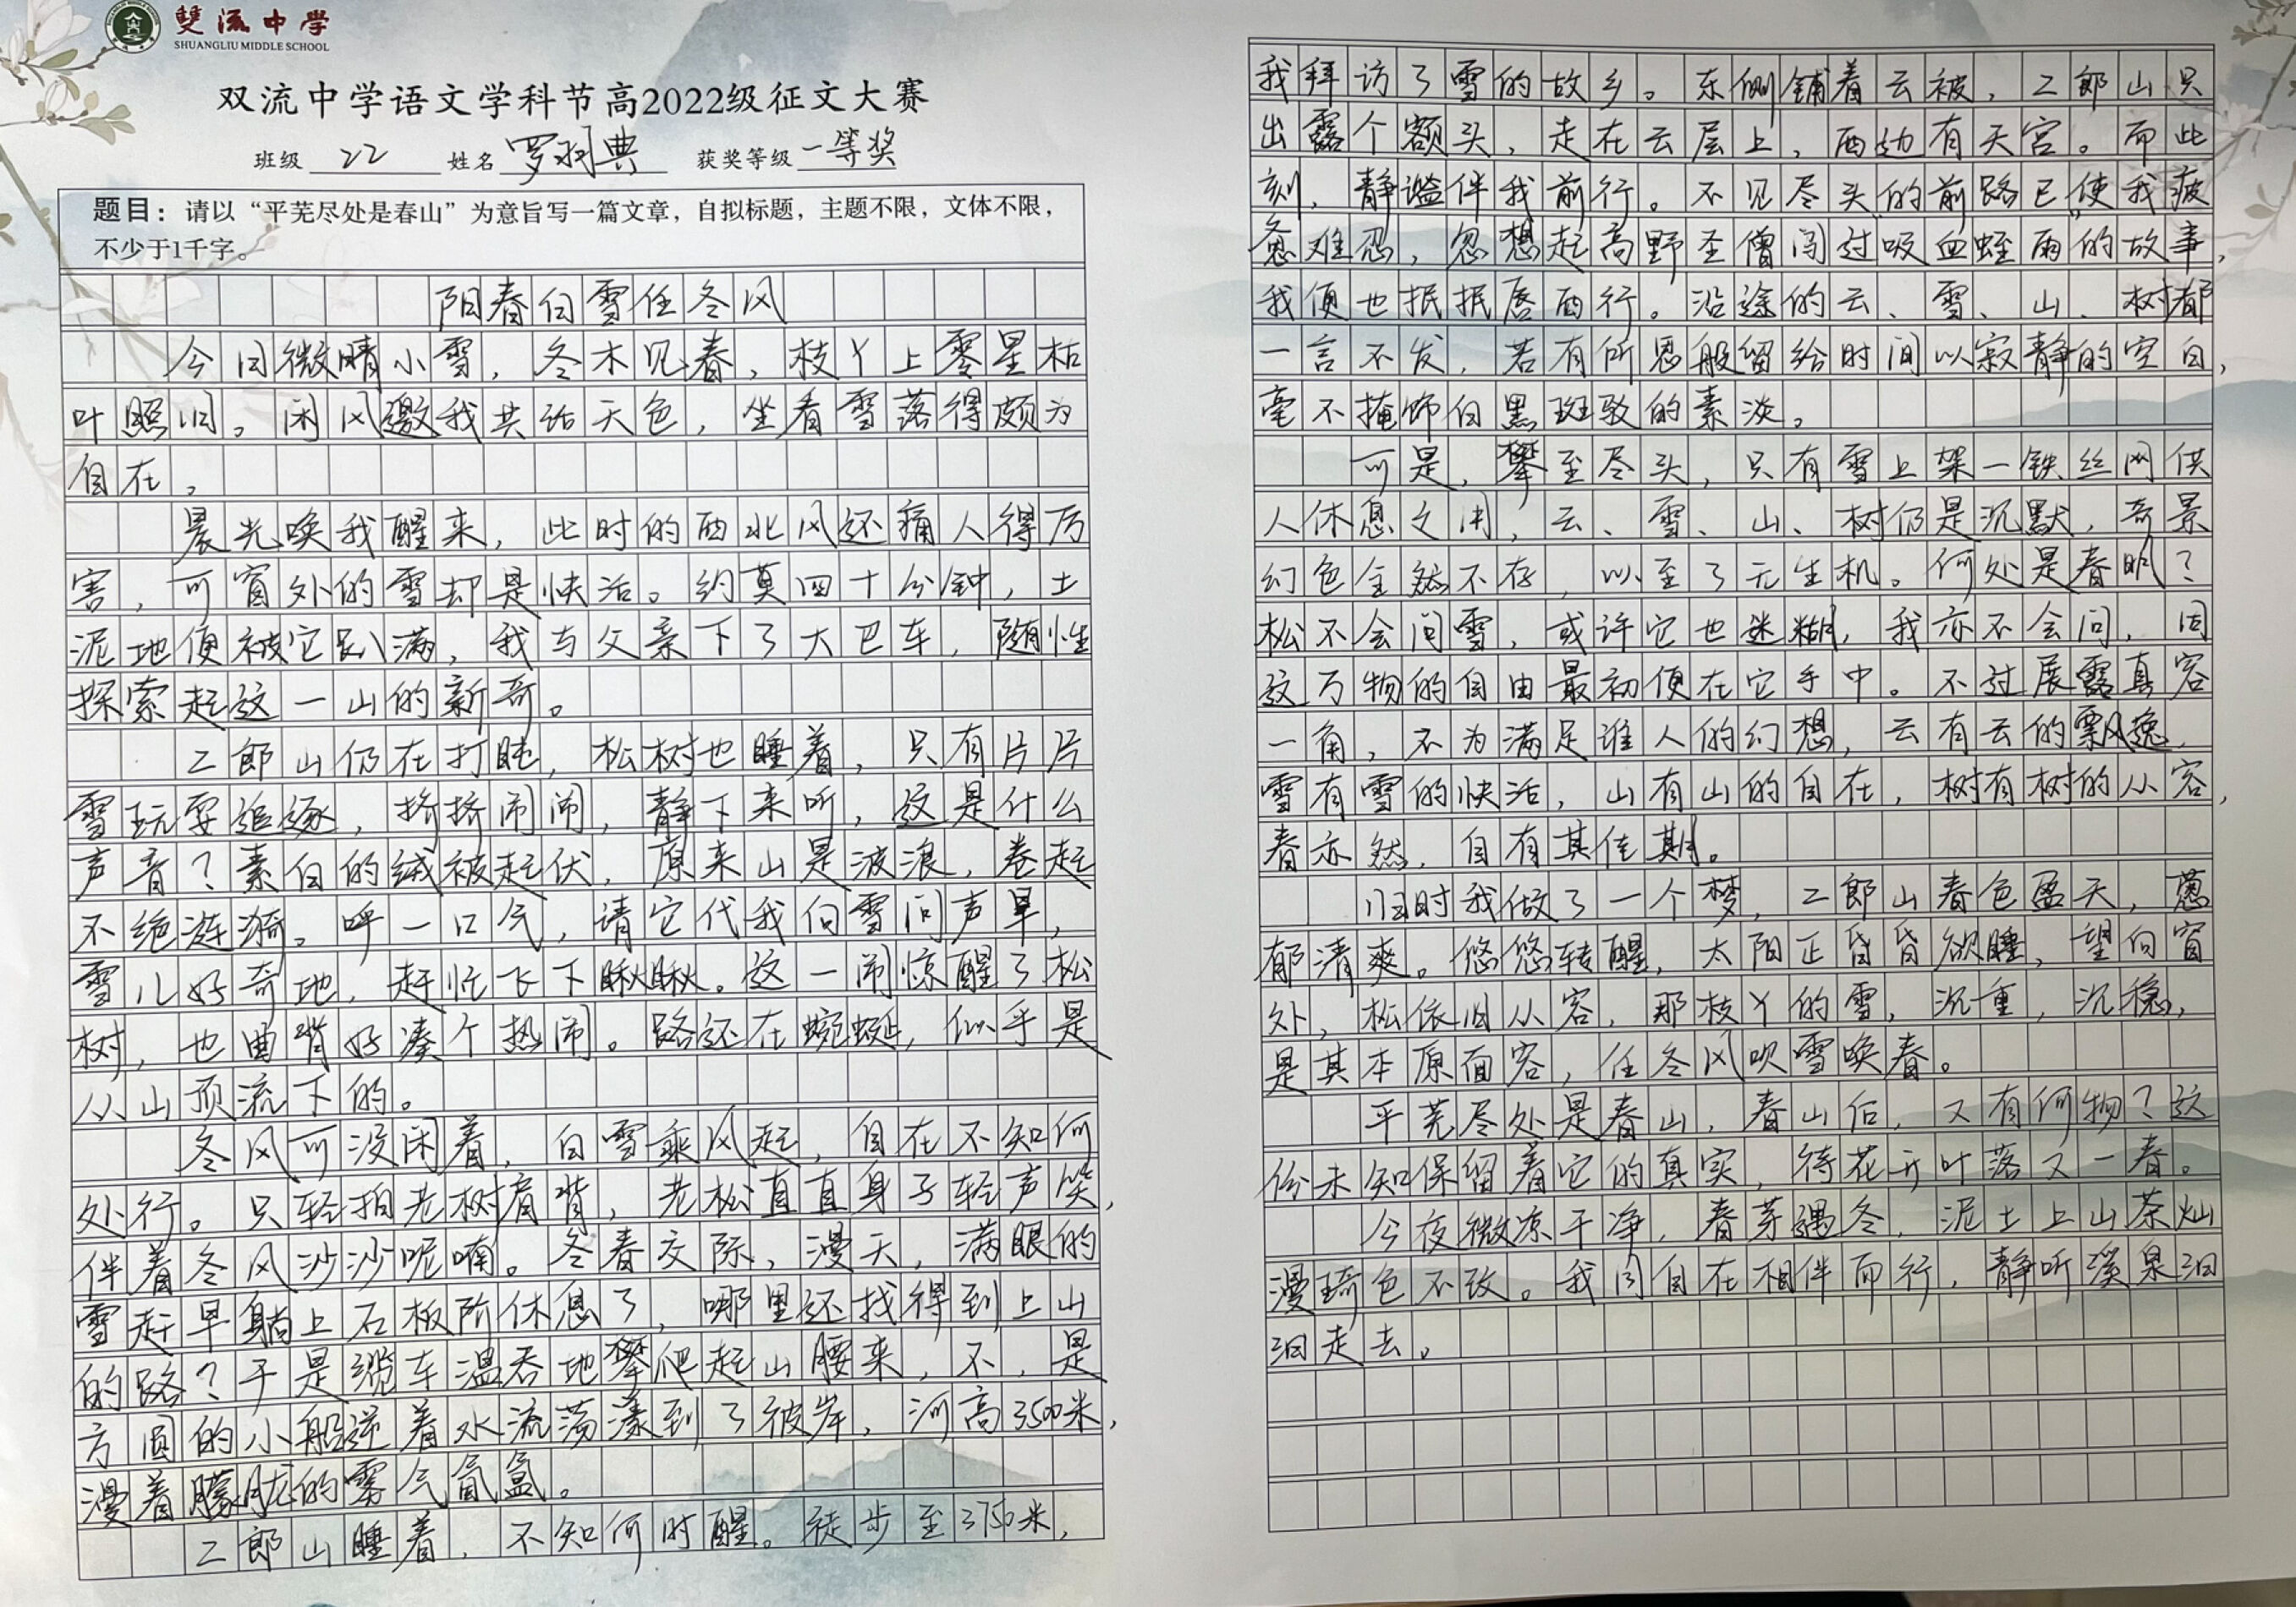 雙流中学
SHUANGLIU MIDDLE SCHOOL
双流中学语文学科节高2022级征文大赛
班级 22 姓名 罗羽典 获奖等级 一等奖
题目：请以“平芜尽处是春山”为意旨写一篇文章，自拟标题，主题不限，文体不限，
不少于1千字。
阳春白雪任冬风
今日微晴小雪，冬木见春，枝丫上零星枯
叶照旧。闲风邀我共话天色，坐看雪落得颇为
自在。
晨光唤我醒来，此时的西北风还痛人得厉
害，可窗外的雪却是快活。约莫四十分钟，土
泥地便被它趴满，我与父亲下了大巴车，随性
探索起这一山的新奇。
二郎山仍在打盹，松树也睡着，只有片片
雪玩耍追逐，挤挤闹闹，静下来听，这是什么
声音？素白的绒被起伏，原来山是波浪，卷起
不绝涟漪。呼一口气，请它代我向雪问声早，
雪儿好奇地，赶忙飞下瞅瞅。这一闹惊醒了松
树，也曲背好凑个热闹。路还在蜿蜒，似乎是
从山顶流下的。
冬风可没闲着，白雪乘风起，自在不知何
处行。只轻拍老树肩背，老松直直身子轻声笑，
伴着冬风沙沙呢喃。冬春交际，漫天，满眼的
雪赶早躺上石板阶休息了，哪里还找得到上山
的路？于是缆车温吞地攀爬起山腰来，不，是
方圆的小船逆着水流荡漾到了彼岸，河高3500米，
漫着朦胧的雾气氤氲。
二郎山睡着，不知何时醒。徒步至3750米，
我拜访了雪的故乡。东侧铺着云被，二郎山只
出露个额头，走在云层上，西边有天宫。而此
刻，静谧伴我前行。不见尽头的前路已使我疲
惫难忍，忽想起高野圣僧闯过“吸血蛭雨”的故事，
我便也抿抿唇西行。沿途的云、雪、山、树都
一言不发，若有所思般留给时间以寂静的空白，
毫不掩饰白黑斑驳的素淡。
可是，攀至尽头，只有雪上架一铁丝网供
人休息之用，云、雪、山、树仍是沉默，奇景
幻色全然不存，以至了无生机。何处是春呢？
松不会问雪，或许它也迷糊，我亦不会问，因
这万物的自由最初便在它手中。不过展露真容
一角，不为满足谁人的幻想，云有云的飘逸，
雪有雪的快活，山有山的自在，树有树的从容，
春亦然，自有其佳期。
归时我做了一个梦，二郎山春色盈天，葱
郁清爽。悠悠转醒，太阳正昏昏欲睡，望向窗
外，松依旧从容，那枝丫的雪，沉重，沉稳，
是其本原面容，任冬风吹雪唤春。
平芜尽处是春山，春山后，又有何物？这
份未知保留着它的真实，待花开叶落又一春。
今夜微凉干净，春芽遇冬，泥土上山茶灿
漫琦色不改。我同自在相伴而行，静听溪泉汩
汩走去。